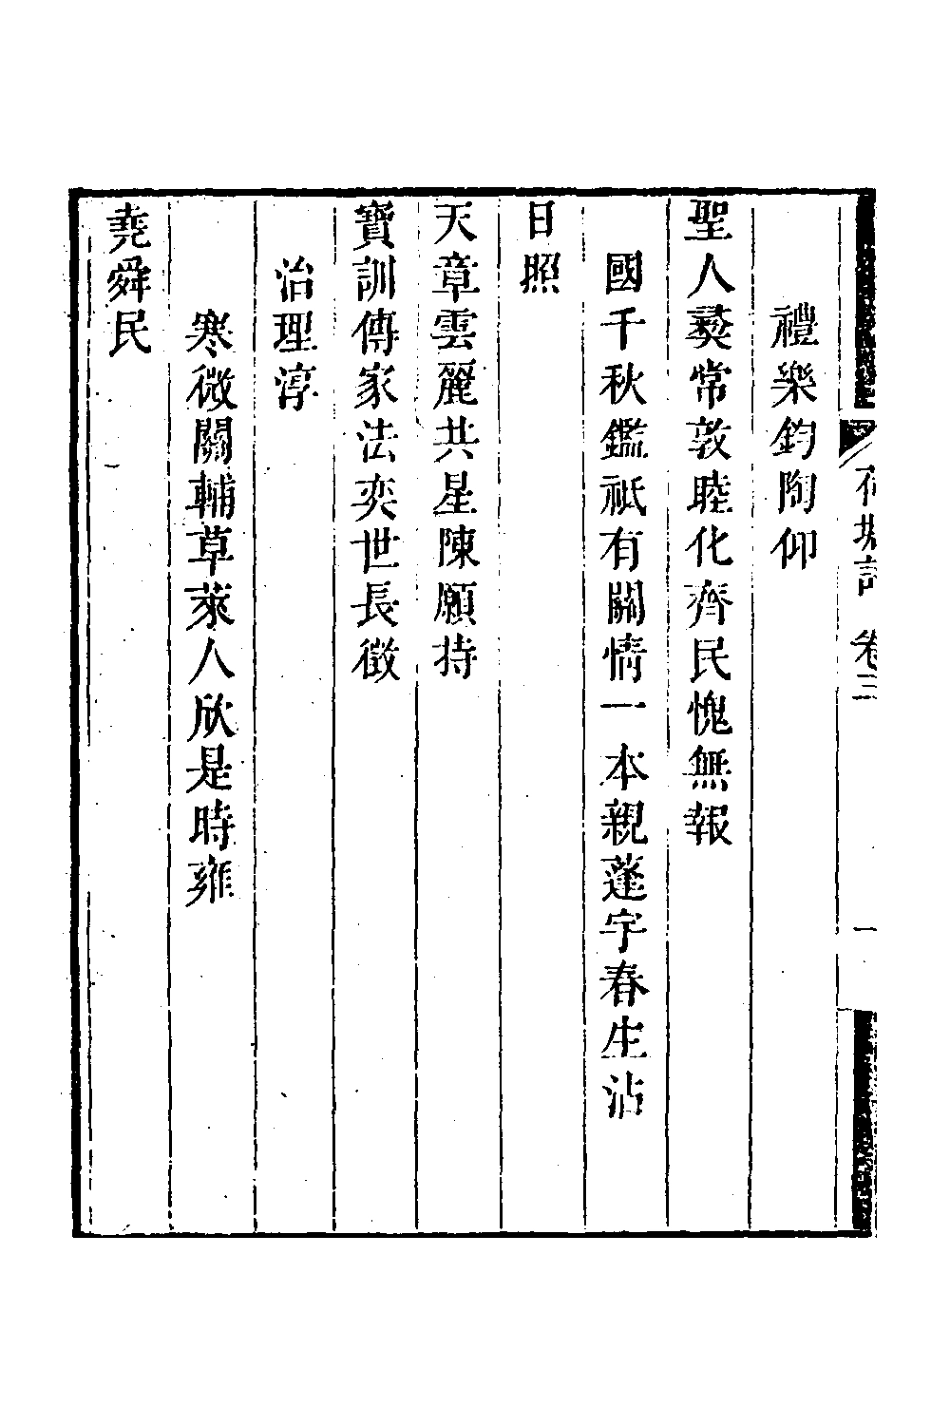 荷塘詩 卷三 一
禮樂鈞陶仰
聖人彝常敦睦化齊民愧無報
國千秋鑑祇有關情一本親蓬宇春生沾
日照
天章雲麗共星陳願持
寶訓傳家法奕世長徵
治理淳
寒微關輔草萊人欣是時雍
堯舜民